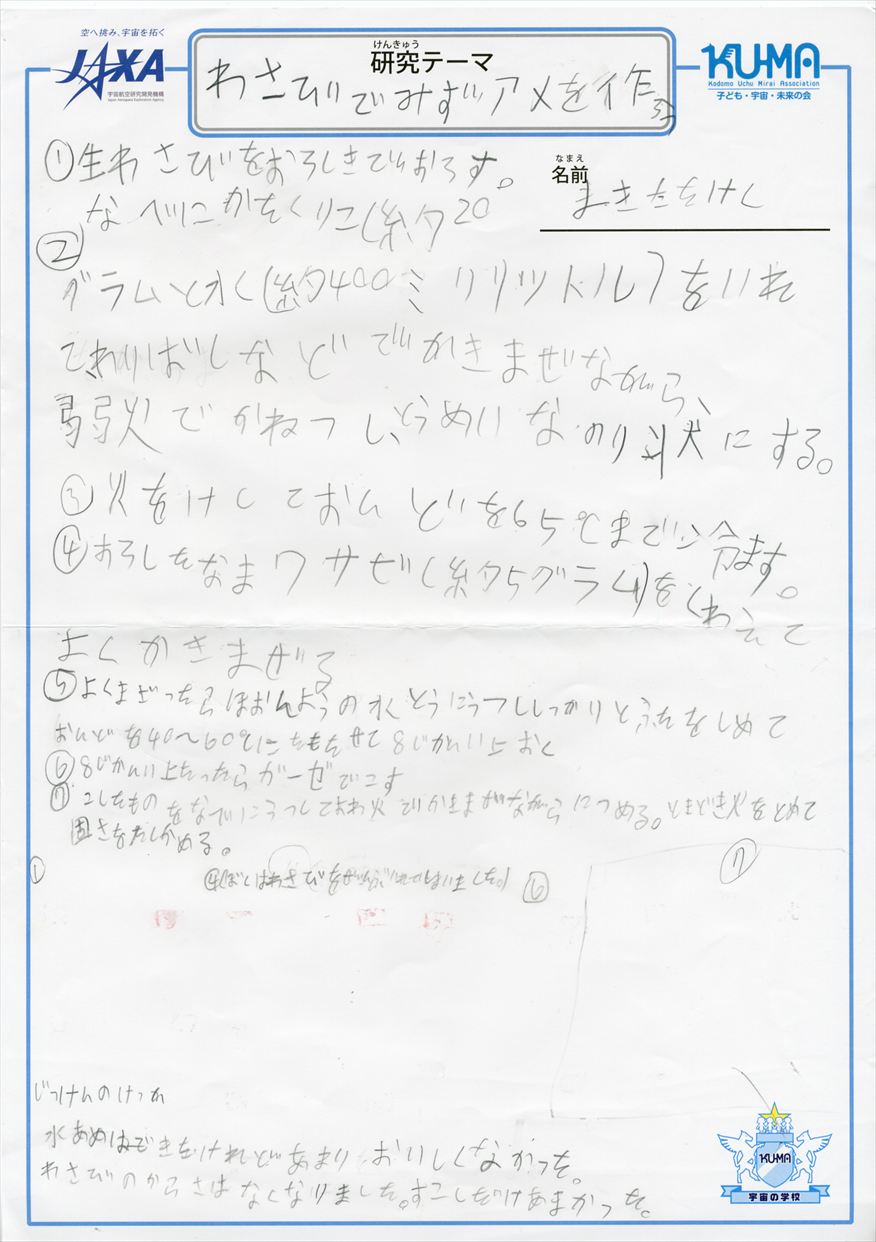 空へ挑み、宇宙を拓く
JAXA
宇宙航空研究開発機構
Japan Aerospace Exploration Agency
けんきゅう
研究テーマ
わさびでみずアメを作る
KU-MA
Kodomo Uchu Mirai Association
子ども・宇宙・未来の会
①生わさびをおろしきでおろす。
なまえ
名前
まきたたけし
②なべにかたくりこ(約20
グラムと水(約400ミリリットル)をいれ
てわりばしなどでかきまぜながら、
弱火でかねつし、とうめいなのり状にする。
③火をけしておんどを65℃まで冷ます。
④おろしたなまワサビ(約5グラム)をくわえて
よくかきまぜる
⑤よくまざったらほおんようの水とうにうつししっかりとふたをしめて
おんどを40～60℃にたもたせて8じかんい上おく
⑥8じかんい上たったらガーゼでこす
⑦こしたものをなべにうつしてよわ火でかきまぜながらにつめる。ときどき火をとめて
固さをたしかめる。
①
④(ぼくはわさびをぜんぶいれてしまいました。)
⑥
⑦
じっけんのけっか
水あめはできたけれどあまりおいしくなかった。
わさびのからさはなくなりました。すこしだけあまかった。
KU-MA
宇宙の学校